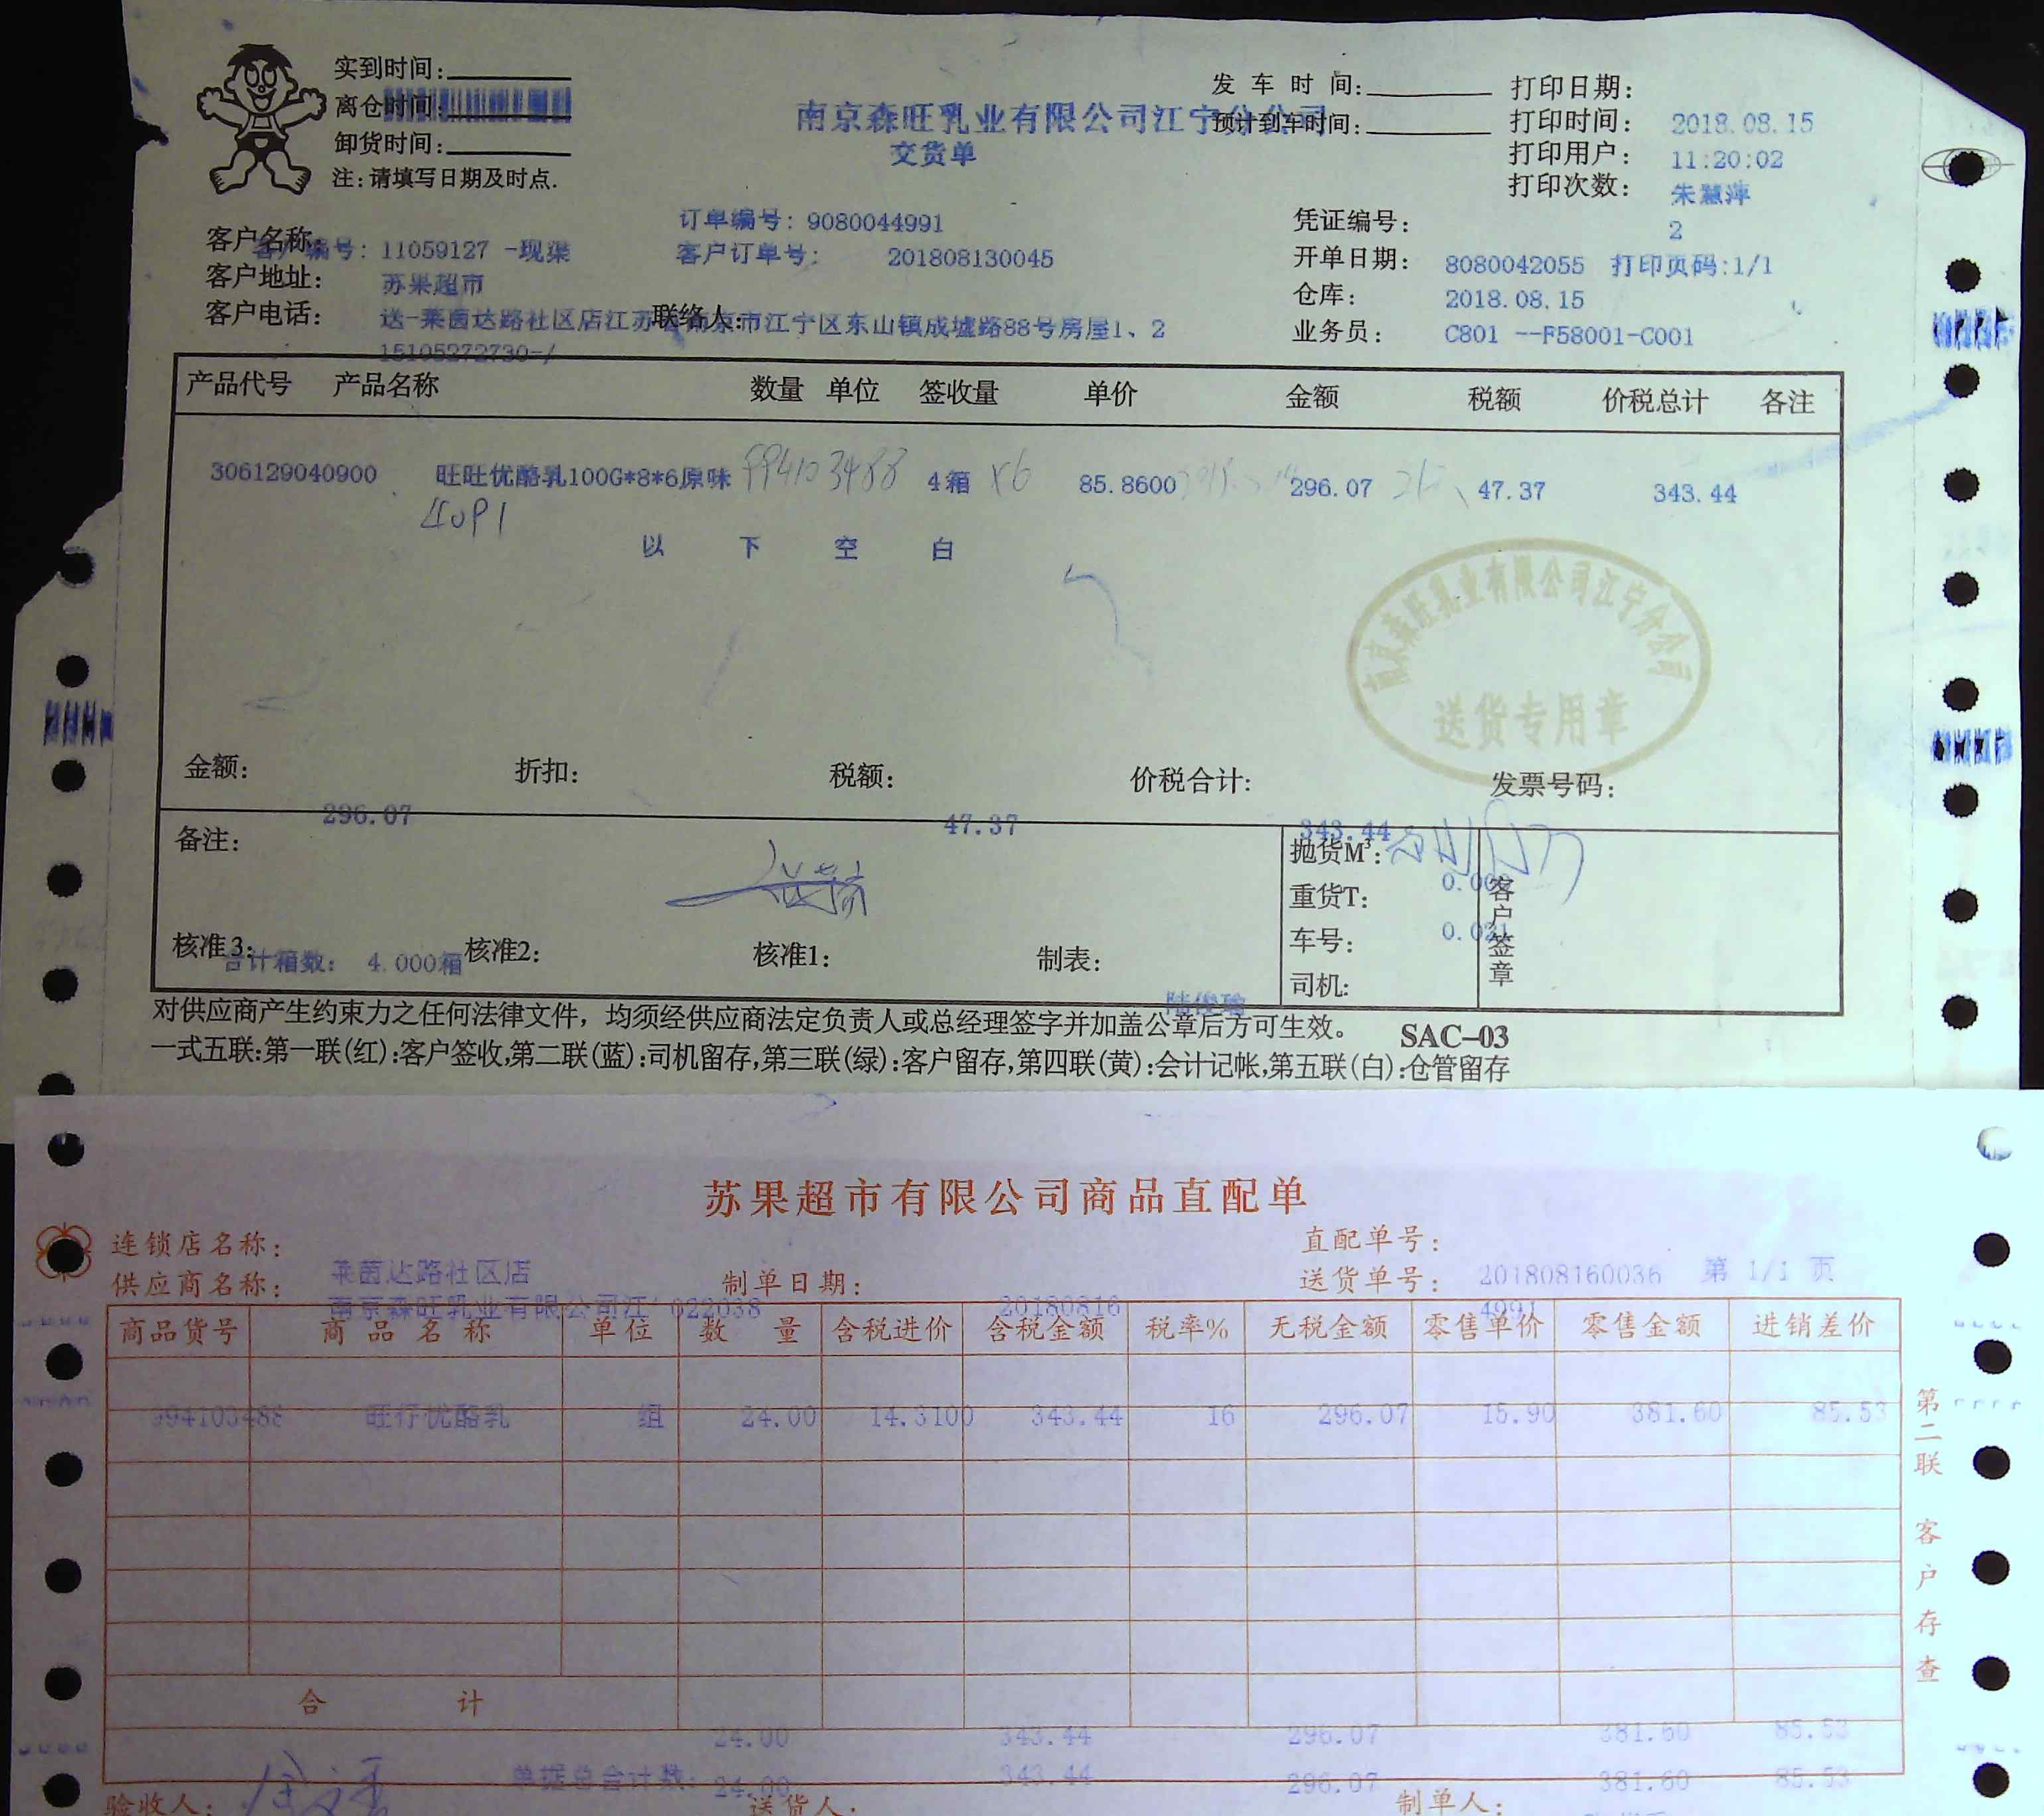 实到时间:
离仓时间:
卸货时间:
注:请填写日期及时点.
南京森旺乳业有限公司江宁分公司
交货单
发 车 时 间:
预计到车时间:
打印日期: 2018.08.15
打印时间: 11:20:02
打印用户: 朱慧萍
打印次数: 2
客户名称:
客户编号: 11059127 -现渠
订单编号: 9080044991
凭证编号: 8080042055 打印页码:1/1
客户地址: 苏果超市
客户订单号: 201808130045
开单日期: 2018.08.15
仓库: C801 --F58001-C001
客户电话: 送-莱茵达路社区店江苏省南京市江宁区东山镇成墟路88号房屋1、2
联络人:
业务员:
15105272730-/
产品代号 产品名称 数量 单位 签收量 单价 金额 税额 价税总计 各注
306129040900 旺旺优酪乳100G*8*6原味 994103488 4箱 x6 85.8600 296.07 47.37 343.44
以 下 空 白
南京森旺乳业有限公司江宁分公司
送货专用章
金额: 折扣: 税额: 价税合计: 发票号码:
296.07 47.37 343.44
备注:
抛货M³:
重货T:
车号: 0.021
司机:
客户签章
核准3: 核准2: 核准1: 制表:
合计箱数: 4.000箱
对供应商产生约束力之任何法律文件，均须经供应商法定负责人或总经理签字并加盖公章后方可生效。 SAC-03
一式五联:第一联(红):客户签收,第二联(蓝):司机留存,第三联(绿):客户留存,第四联(黄):会计记帐,第五联(白):仓管留存
苏果超市有限公司商品直配单
连锁店名称: 莱茵达路社区店
直配单号: 201808160036 第 1/1 页
供应商名称: 南京森旺乳业有限公司江 022038
制单日期: 20180816
送货单号: 4991
商品货号 商品名称 单位 数量 含税进价 含税金额 税率% 无税金额 零售单价 零售金额 进销差价
994103488 旺仔优酪乳 组 24.00 14.3100 343.44 16 296.07 15.90 381.60 85.53
合 计
24.00 343.44 296.07 381.60 85.53
单据总合计数: 24.00 343.44 296.07 381.60 85.53
验收人: 送货人: 制单人:
第二联 客户存查